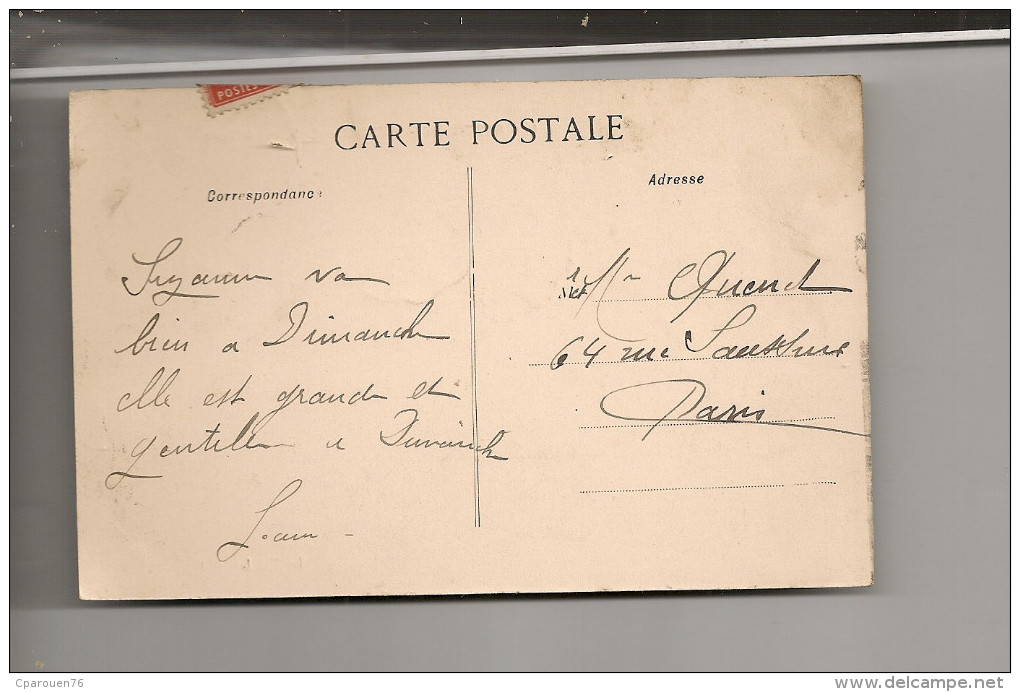 POSTES
CARTE POSTALE
Correspondance
Adresse
Suzanne va
bien a Dimanche
elle est grande et
gentille a Dimanche
M
Mr Quenet
64 rue Saussure
Paris
Cparouen76
www.delcampe.net